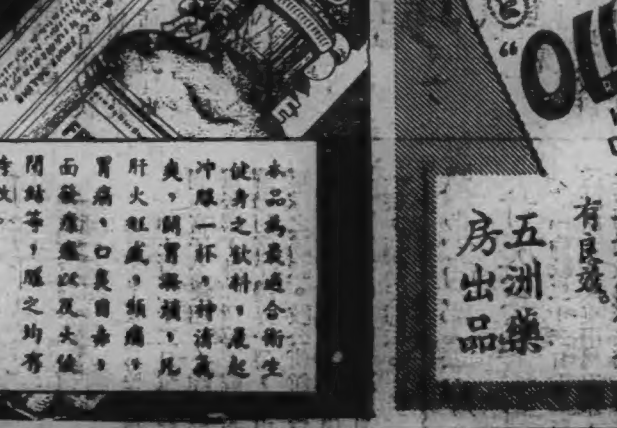 本品為最適合衛生
健身之飲料，晨起
冲服一杯，神清氣
爽，開胃無積，凡
肝火旺盛，頭痛，
胃痛，口臭目赤，
面發疙瘩以及大便
閉結等，服之均有
有良效。
五洲藥
房出品